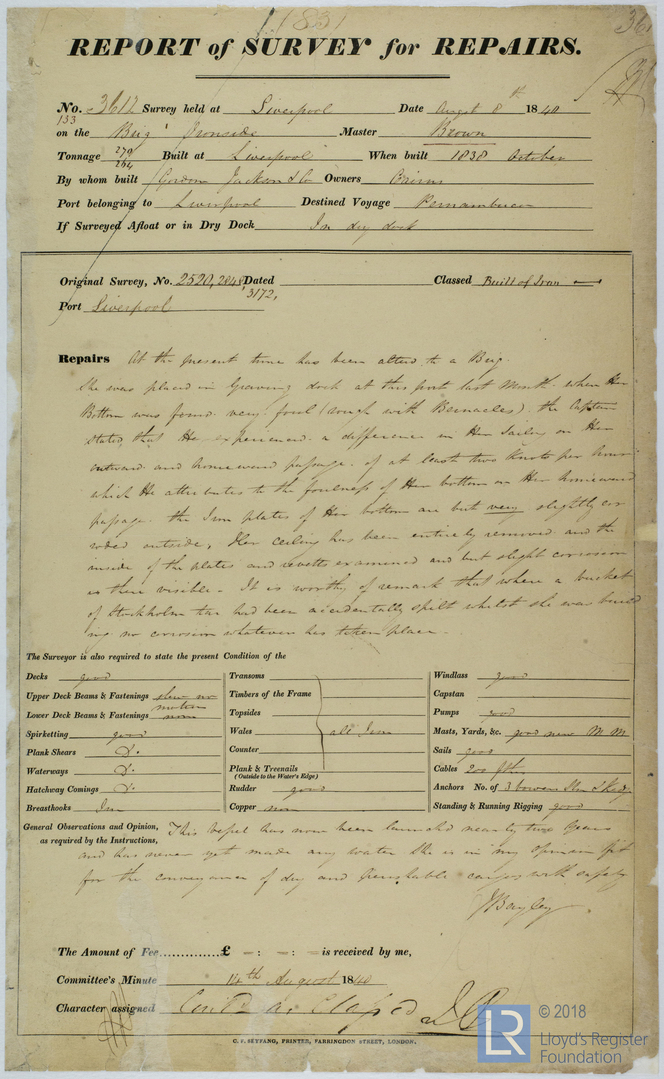 1831
36
REPORT of SURVEY for REPAIRS.
No. 3612 Survey held at Liverpool Date Augst 8th 1840
133
on the Brig' Ironside Master Brown
Tonnage 270 264 Built at Liverpool When built 1838 October
By whom built Gordon Jackson & Co Owners Cairns
Port belonging to Liverpool Destined Voyage Pernambuco
If Surveyed Afloat or in Dry Dock In dry dock
Original Survey, No. 2520, 2848, 3172, Dated Classed Built of Iron
Port Liverpool
Repairs At the present time has been altered to a Brig.
She was placed in Graving dock at this port last Month. when Her
Bottom was found very foul (rough with Bernacles). the Captain
stated that He experienced a difference in Her Sailing on Her
outward and homeward passage. of at least two Knots per hour
which He attributes to the foulness of Her bottom on Her homeward
passage. the Iron plates of Her bottom are but very slightly cor
roded outside, Her ceiling has been entirely removed and the
inside of the plates and revetts examined and but slight corrosion
is there visible - It is worthy of remark that where a bucket
of Stockholm tar had been accidentally spilt whilst she was build
ing no corrosion whatever has taken place.
The Surveyor is also required to state the present Condition of the
Decks good
Upper Deck Beams & Fastenings shew no motion
Lower Deck Beams & Fastenings none
Spirketting good
Plank Shears Do.
Waterways Do.
Hatchway Comings Do.
Breasthooks Iron
Transoms
Timbers of the Frame
Topsides
Wales all Iron
Counter
Plank & Treenails
(Outside to the Water's Edge)
Rudder good
Copper none
Windlass good
Capstan
Pumps good
Masts, Yards, &c. good new M M
Sails good
Cables 200 fthm
Anchors No. of 3 bowers Strm & Kedge
Standing & Running Rigging good
General Observations and Opinion, This vessel has now been launched nearly two years
as required by the Instructions, and has never yet made any water She is in my opinion fit
for the conveyance of dry and perishable cargos with safety
J Bayley
The Amount of Fee............£ — : — : — is received by me,
Committee's Minute 14th August 1840
Character assigned Contd as Classed
C. F. SEYFANG, PRINTER, FARRINGDON STREET, LONDON.
LR
© 2018
Lloyd's Register
Foundation